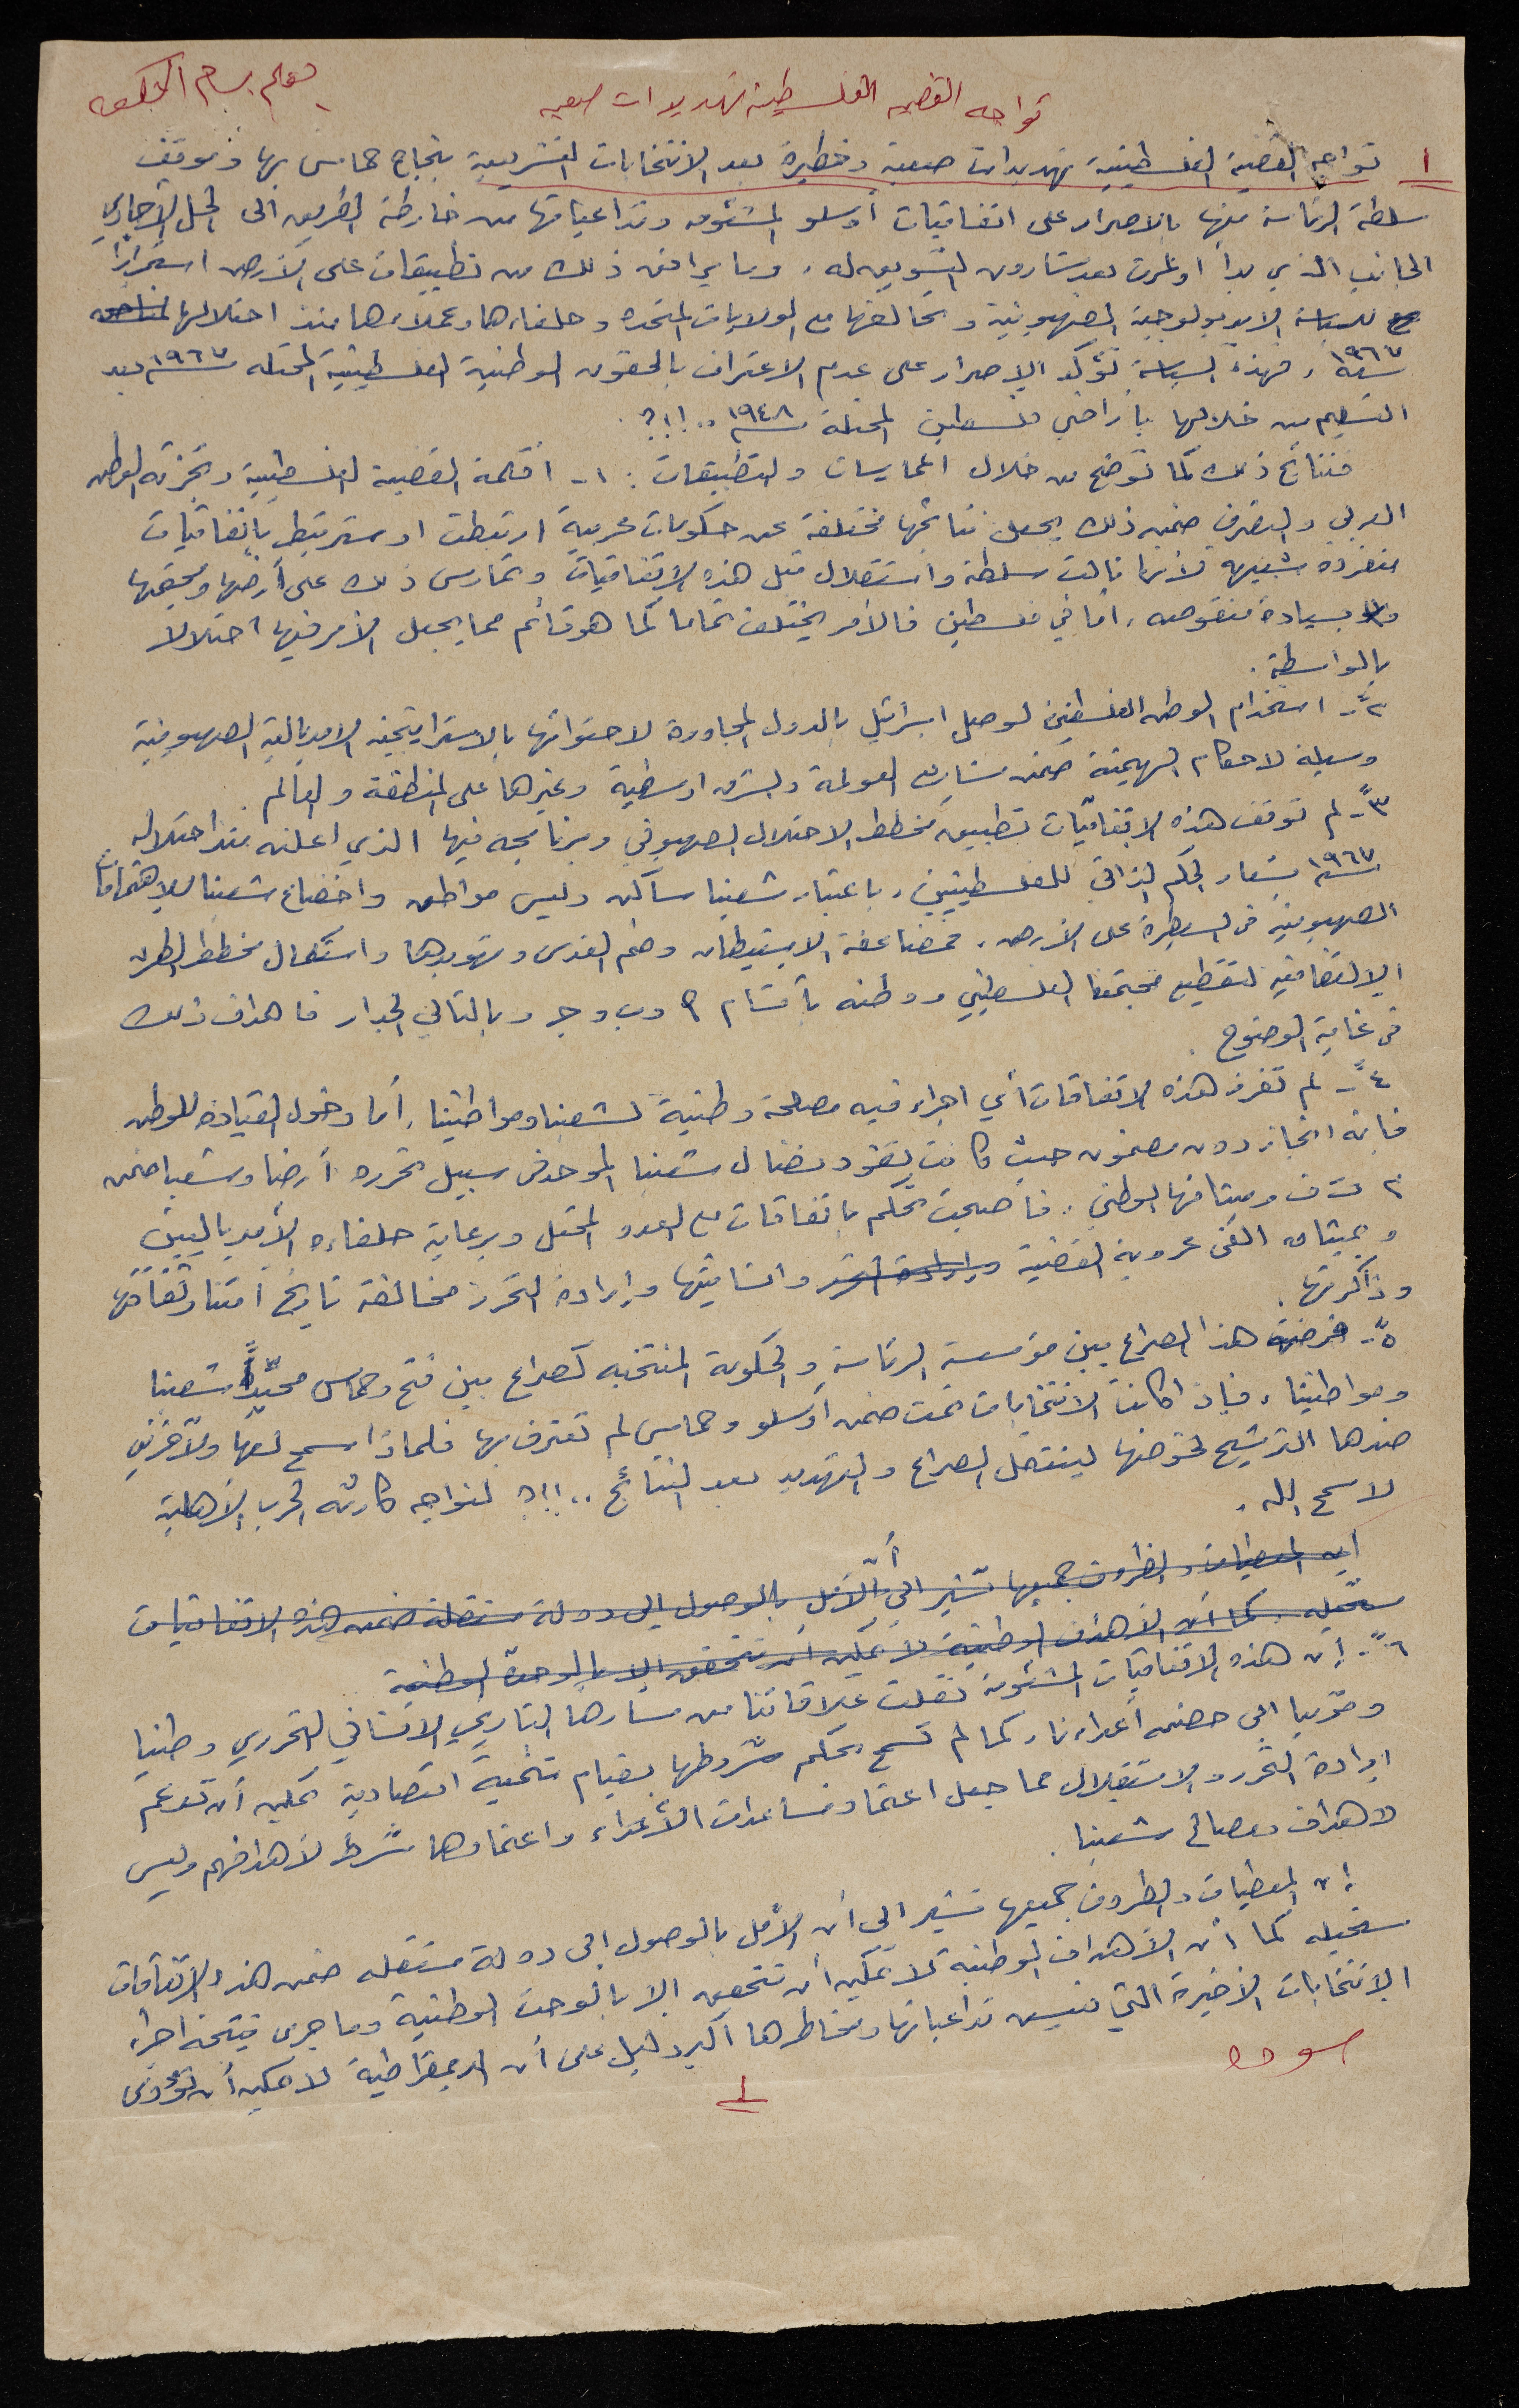 بقلم بسام الشكعه
تواجه القضيه الفلسطينيه تهديدات صعبه
١ تواجه القضية الفلسطينية تهديدات صعبة وخطيرة بعد الانتخابات التشريعية بنجاح حماس بها وموقف
سلطة الرئاسة منها بالاصرار على اتفاقيات أوسلو المشئومه وتداعياتها من خارطة الطريق الى الحل الأحادي
الجانب الذي بدأ اولمرت بعد شارون التسويق له، وما يرافق ذلك من تطبيقات على الأرض استمراراً
للسياسة الايديولوجية الصهيونية وتحالفها مع الولايات المتحده وحلفاءها وعملاءها منذ احتلالها
سنة ١٩٦٧، فهذه السياسة تؤكد الاصرار على عدم الاعتراف بالحقوق الوطنية الفلسطينية المحتله سنة ١٩٦٧ بعد
التسليم من خلالها بأراضي فلسطين المحتلة سنة ١٩٤٨ ..!!؟.
فنتائج ذلك كما توضح من خلال الممارسات والتطبيقات : ١- أقلمة القضية الفلسطينية وتجزئة الوطن
العربي والتصرف ضمن ذلك يجعل نتائجها مختلفة عن حكومات عربية ارتبطت او سترتبط بإتفاقيات
منفرده شبيهه لأنها نالت سلطة واستقلال قبل هذه الاتفاقيات وتمارس ذلك على أرضها ومجتمعها
ولو بسيادة منقوصه، أما في فلسطين فالأمر يختلف تماما كما هو قائم مما يجعل الأمر فيها احتلالا
بالواسطة.
٢ً- استخدام الوطن الفلسطيني لوصل اسرائيل بالدول المجاورة لاحتوائها بالاستراتيجيه الامبريالية الصهيونية
وسيلة لاحكام الهيمنة ضمن مشاريع العولمة والشرق اوسطية وغيرها على المنطقة والعالم.
٣ً- لم توقف هذه الاتفاقيات تطبيق مخطط الاحتلال الصهيوني وبرنامجه فيها الذي اعلنه منذ احتلاله
سنة ١٩٦٧ بشعار الحكم الذاتي للفلسطينيين، باعتبار شعبنا ساكن وليس مواطن واخضاع شعبنا للاهتمامات
الصهيونية في السيطرة على الأرض، فمضاعفة الاستيطان وضم القدس وتهويدها واستكمال مخطط الطرق
الالتفافيه لتقطيع مجتمعنا الفلسطيني ووطنه بأقسام أ وب وجـ وبالتالي الجدار فأهداف ذلك
في غاية الوضوح.
٤ً- لم تفرز هذه الاتفاقات أي اجراء فيه مصلحة وطنية لشعبنا ومواطنينا، أما دخول القيادة للوطن
فإنه انجاز دون مضمون حيث كانت تقود نضال شعبنا الموحد في سبيل تحرره أرضا وشعبا ضمن
م ت ف وميثاقها الوطني. فأصبحت تحكم باتفاقات مع العدو المحتل وبرعاية حلفاءه الأمبرياليين
وبميثاق الغى عروبة القضية وارادة التحرر وانسانيتها وإرادة التحرر مخالفة تاريخ أمتنا وثقافتها
وذاكرتها.
٥ً- هذا الصراع بين مؤسسة الرئاسة والحكومة المنتخبه كصراع بين فتح وحماس محيّداً شعبنا
ومواطنينا، فإذا كانت الانتخابات تمت ضمن أوسلو وحماس لم تعترف بها فلماذا سمح لها
ضدها الترشيح لخوضها لينتقل الصراع والتهديد بعد النتائج ..!!؟ لنواجه كارثة الحرب الأهلية
لا سمح الله.
أن المعطيات والظروف جميعها تشير الى أن الأمل بالوصول الى دولة مستقلة ضمن هذه الاتفاقيات
مستحيله. كما أن الأهداف الوطنية لا يمكن أن تتحقق الا بالوحدة الوطنية
٦ً- إن هذه الاتفاقيات المشئومة نقلت علاقاتنا من مسارها التاريخي الانساني التحرري وطنيا
وقوميا الى حضن أعداءنا، كما لم تسمح بحكم شروطها بقيام تنمية اقتصادية يمكن أن تدعم
ارادة التحرر والاستقلال مما جعل اعتماد مساعدات الأعداء واعتمادها شرط لأهدافهم وليس
لاهداف ومصالح شعبنا.
إن المعطيات والظروف جميعها تشير الى أن الأمل بالوصول الى دولة مستقله ضمن هذه الاتفاقات
مستحيله كما أن الأهداف الوطنية لا يمكن أن تتحقق الا بالوحدة الوطنية وما جرى نتيجة اجراء
الانتخابات الأخيرة التي نعيش تداعياتها ومخاطرها أكبر دليل على أن الديمقراطية لا يمكن أن تؤدى
مسوده
١